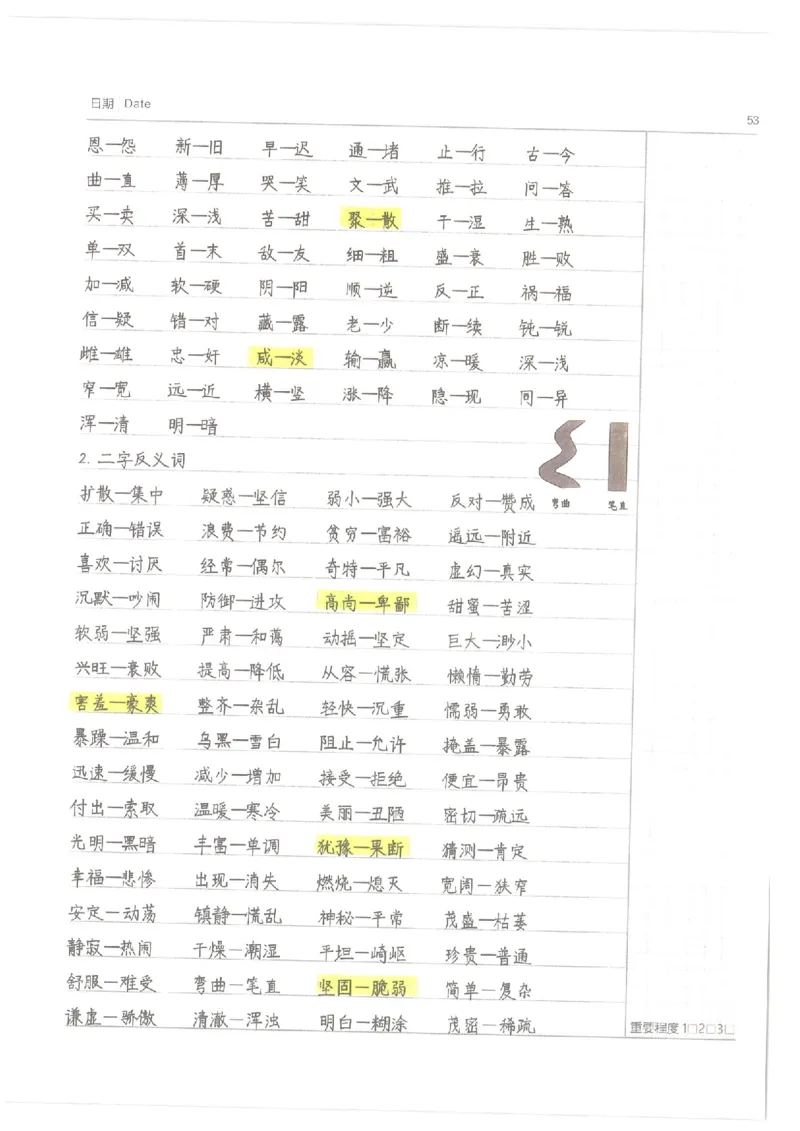 日期 Date
53
恩—怨 新—旧 早—迟 通—堵 止—行 古—今
曲—直 薄—厚 哭—笑 文—武 推—拉 问—答
买—卖 深—浅 苦—甜 聚—散 干—湿 生—熟
单—双 首—末 敌—友 细—粗 盛—衰 胜—败
加—减 软—硬 阴—阳 顺—逆 反—正 祸—福
信—疑 错—对 藏—露 老—少 断—续 钝—锐
雌—雄 忠—奸 咸—淡 输—赢 凉—暖 深—浅
窄—宽 远—近 横—竖 涨—降 隐—现 同—异
浑—清 明—暗
2. 二字反义词
扩散—集中 疑惑—坚信 弱小—强大 反对—赞成
弯曲 笔直
正确—错误 浪费—节约 贫穷—富裕 遥远—附近
喜欢—讨厌 经常—偶尔 奇特—平凡 虚幻—真实
沉默—吵闹 防御—进攻 高尚—卑鄙 甜蜜—苦涩
软弱—坚强 严肃—和蔼 动摇—坚定 巨大—渺小
兴旺—衰败 提高—降低 从容—慌张 懒惰—勤劳
害羞—豪爽 整齐—杂乱 轻快—沉重 懦弱—勇敢
暴躁—温和 乌黑—雪白 阻止—允许 掩盖—暴露
迅速—缓慢 减少—增加 接受—拒绝 便宜—昂贵
付出—索取 温暖—寒冷 美丽—丑陋 密切—疏远
光明—黑暗 丰富—单调 犹豫—果断 猜测—肯定
幸福—悲惨 出现—消失 燃烧—熄灭 宽阔—狭窄
安定—动荡 镇静—慌乱 神秘—平常 茂盛—枯萎
静寂—热闹 干燥—潮湿 平坦—崎岖 珍贵—普通
舒服—难受 弯曲—笔直 坚固—脆弱 简单—复杂
谦虚—骄傲 清澈—浑浊 明白—糊涂 茂密—稀疏
重要程度 1□2□3□